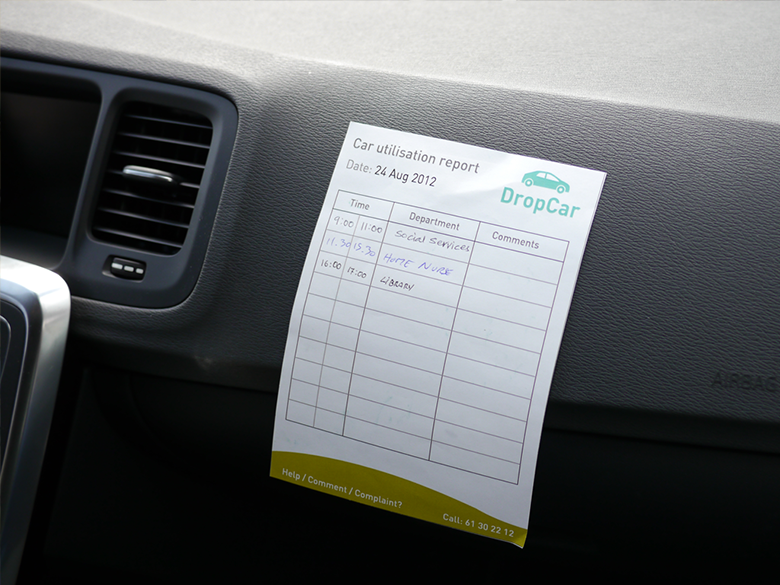 Car utilisation report
Date: 24 Aug 2012
DropCar
Time Department Comments
9:00 11:00 Social Services
11.30 15.30 HOME NURE
16:00 17:00 LIBRARY
Help / Comment / Complaint?
Call: 61 30 22 12
AIRBAG